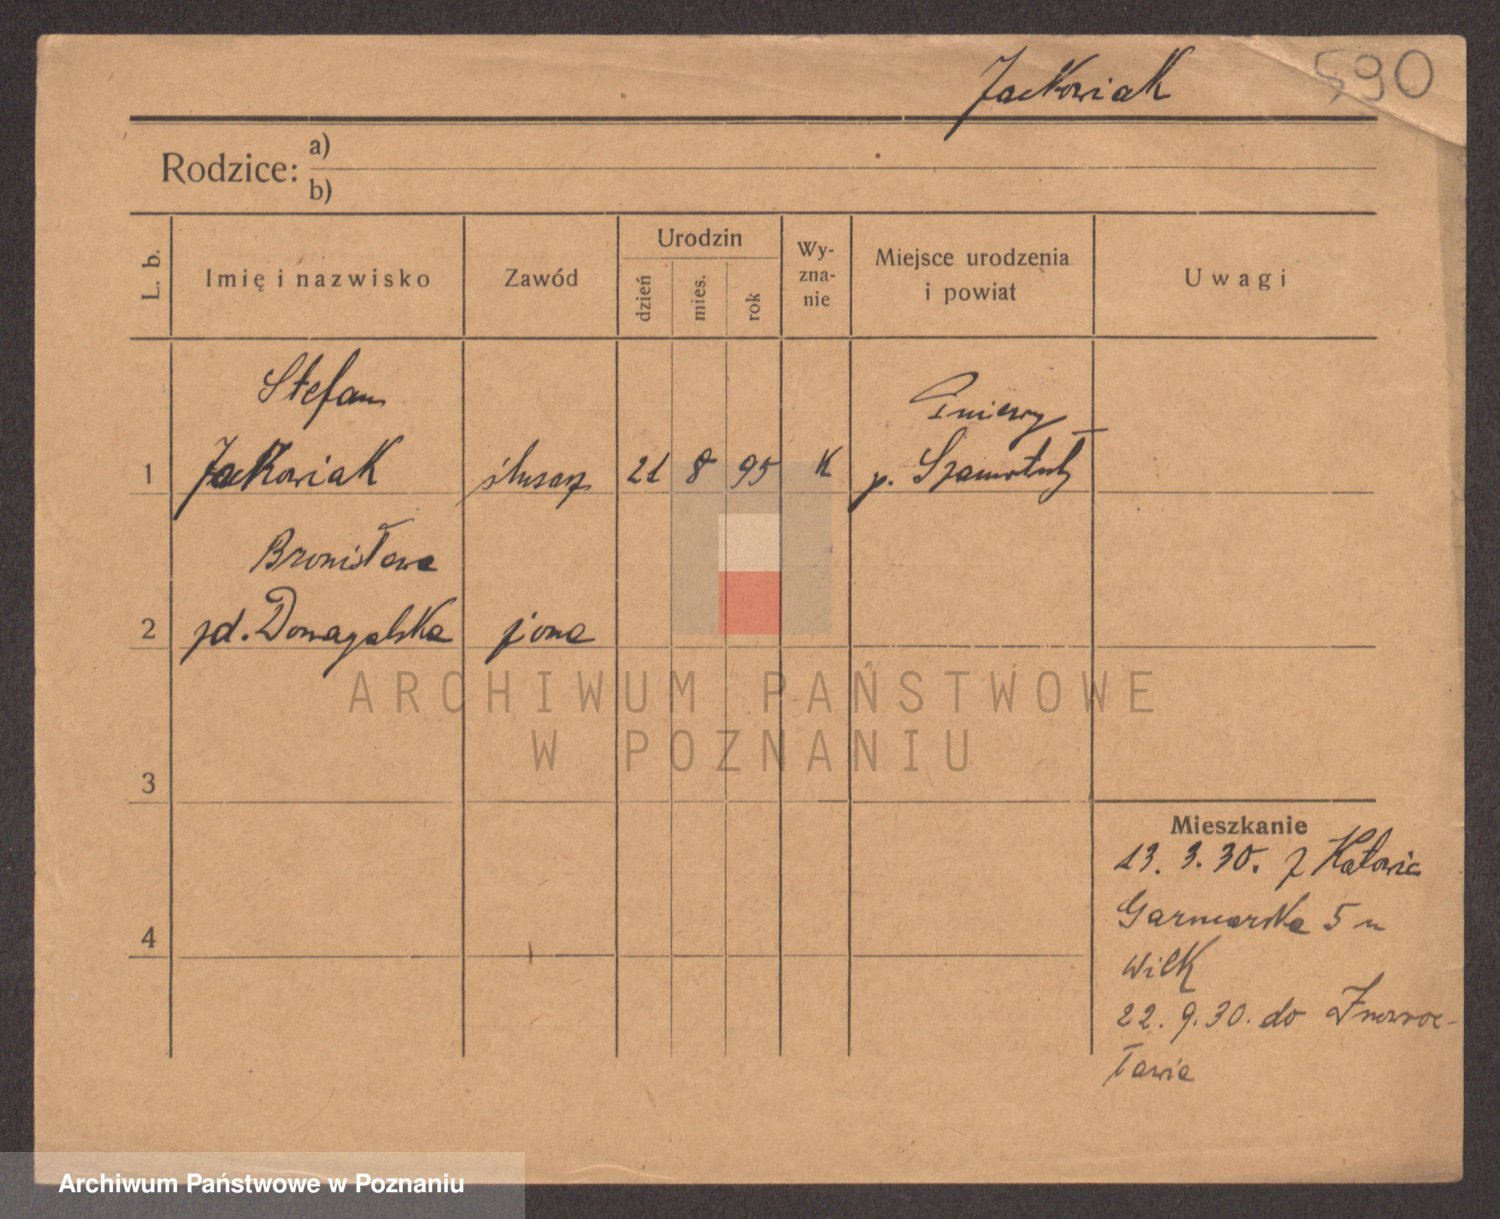 Jackowiak 590
Rodzice: a)
b)
L. b. Imię i nazwisko Zawód Urodzin dzień mies. rok Wy-zna-nie Miejsce urodzenia i powiat Uwagi
Stefan
1 Jackowiak ślusarz 21 8 95 K p. Szamotuły
Bronisława
2 zd. Domagalska żona
3
4
Mieszkanie
13. 3. 30. z Katowic
Garncarska 5 u
Wilk
22. 9. 30. do Inowroc-
ławia
ARCHIWUM PAŃSTWOWE
W POZNANIU
Archiwum Państwowe w Poznaniu